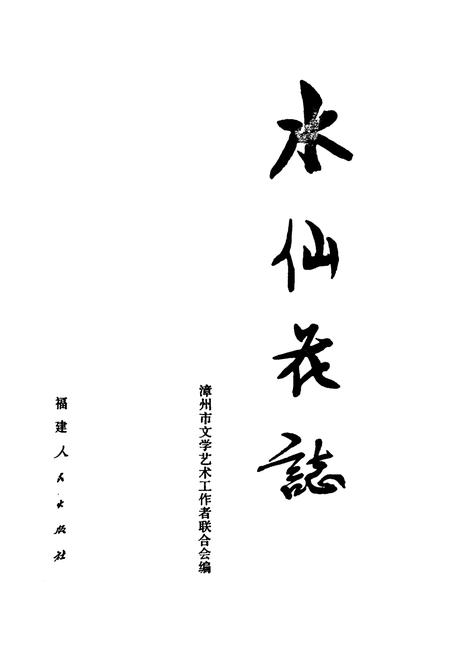 水仙花誌
漳州市文学艺术工作者联合会编
福建人民出版社